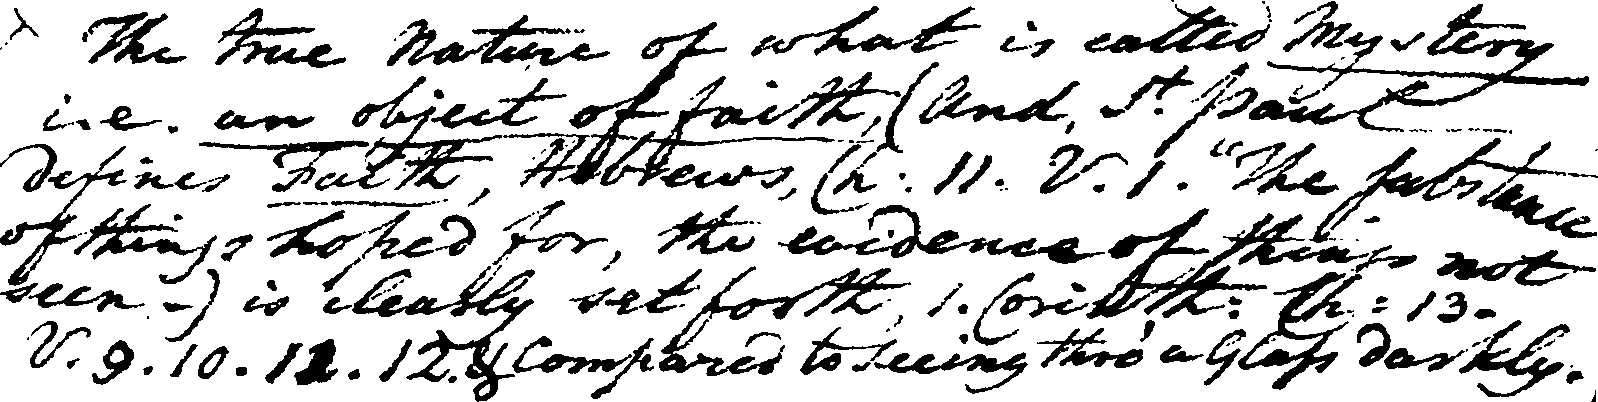 The true Nature of what is called Mystery
i.e. an object of faith, (And, St. Paul
defines Faith, Hebrews, Ch. 11. V. 1. "The substance
of things hoped for, the evidence of things not
seen -) is clearly set forth, 1. Corinth: Ch: 13.
V. 9. 10. 11. 12. & Compared to seeing thro' a Glass darkly.